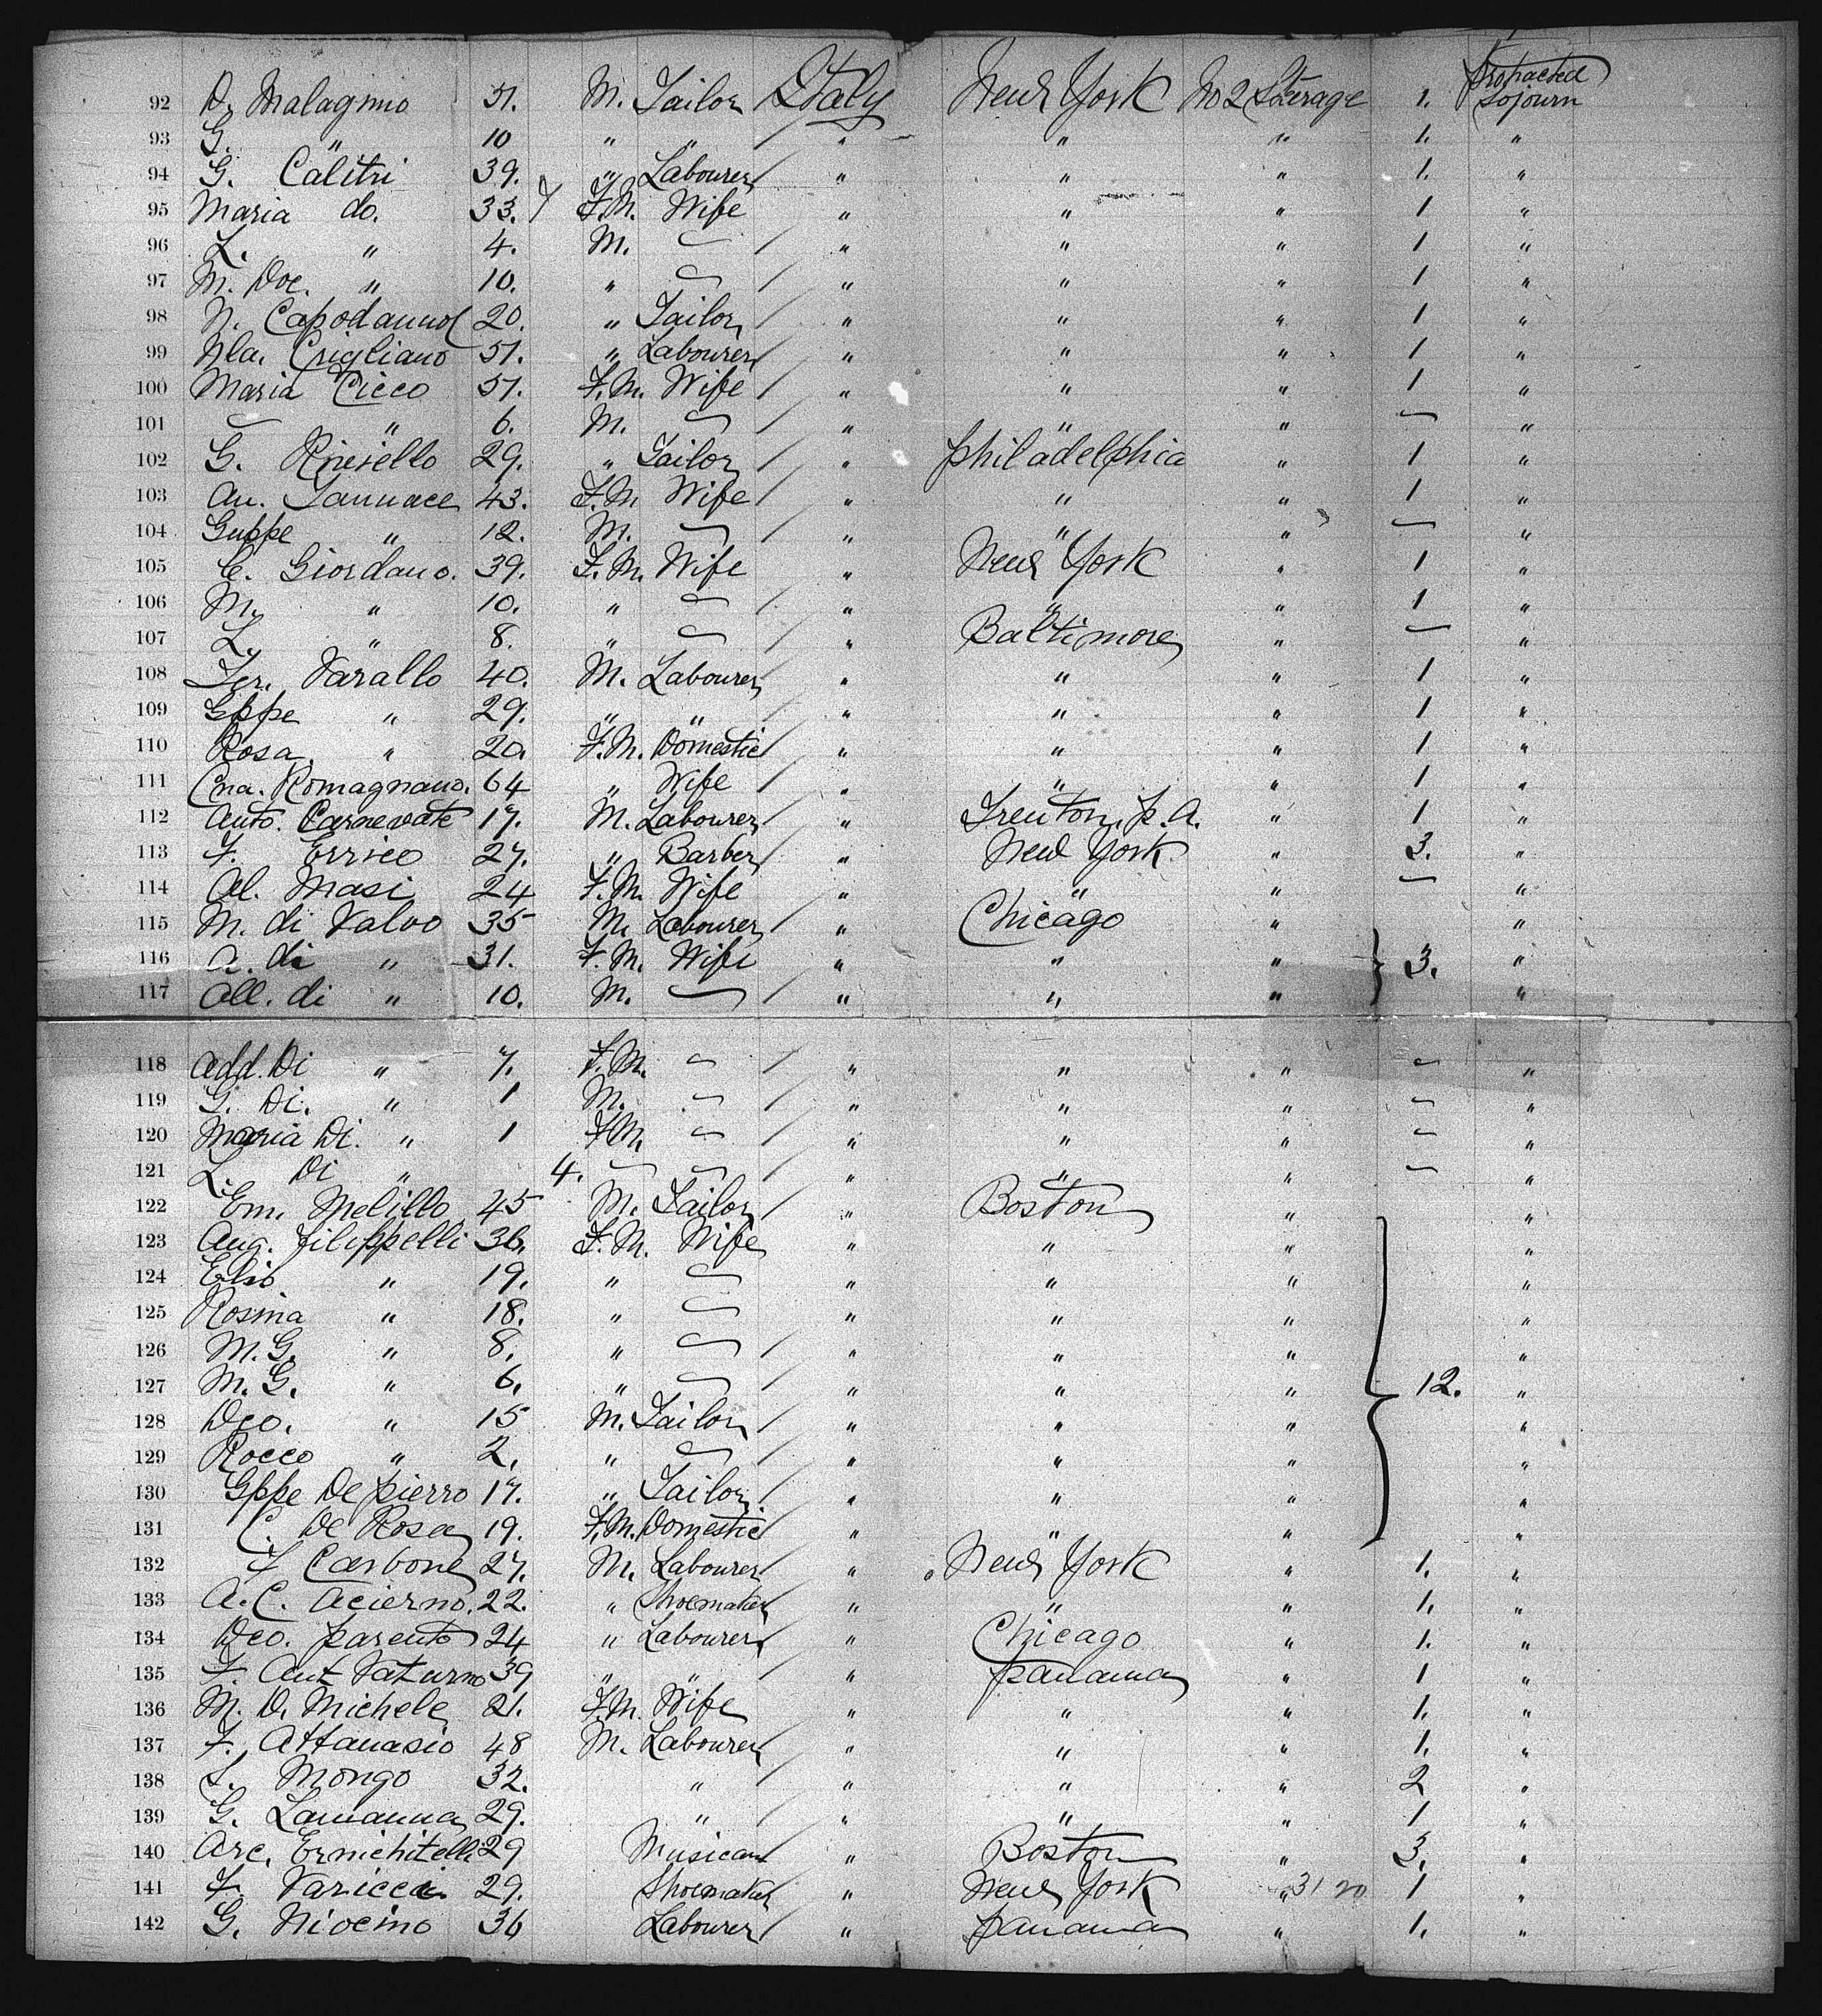 92 D. Malagnino 31. M. Tailor Italy New York No 2 Steerage 1. Protracted Sojourn
93 G. " 10 " " / " " " 1. "
94 G. Calitri 39. " Labourer / " " " 1. "
95 Maria do. 33. F.M. Wife " " " 1 "
96 L. " 4. M. — / " " " 1 "
97 M. Doe. " 10. " — / " " " 1 "
98 N. Capodanno 20. " Tailor / " " " 1 "
99 Nla. Crigliano 51. " Labourer / " " " 1 "
100 Maria Cicco 51. F.M. Wife / " " " 1 "
101 — " 6. M. — / " " " — "
102 G. 29. " Tailor / " Philadelphia " 1 "
103 An. Iannace 43. F.M. Wife / " " " 1 "
104 Guppe " 12. M. — / " " " — "
105 C. Giordano. 39. F.M. Wife " New York " 1 "
106 M. " 10. " — / " " " 1 "
107 L. " 8. " — / " Baltimore " — "
108 Fer. Varallo 40. M. Labourer " " " 1 "
109 Gppe " 29. " " " " " 1 "
110 Rosa " 20. F.M. Domestic / " " " 1 "
111 Cna. Romagnano. 64 " Wife / " " " 1 "
112 Anto. Carnevale 17. M. Labourer / " Trenton, P.A. " 1 "
113 F. Errico 27. " Barber / " New York " 3. "
114 Al. Masi 24 F.M. Wife / " " " — "
115 M. di Salvo 35 M. Labourer / " Chicago " "
116 A. di " 31. F.M. Wife / " " " 3. "
117 All. di " 10. M. — / " " " "
118 Add. Di " 7. F.M. — / " " " — "
119 G. Di. " 1 M. — / " " " — "
120 Maria Di. " 1 F.M. — / " " " — "
121 L. Di " 4. — — / " " " — "
122 Em. Melillo 45 M. Tailor / " Boston " "
123 Ang. Filippelli 36. F.M. Wife " " " "
124 " 19. " — " " " "
125 Rosina " 18. " — " " " "
126 M.G. " 8. " — / " " " "
127 M.G. " 6. " — / " " " 12. "
128 Dco. " 15 M. Tailor / " " " "
129 Rocco " 2. " — / " " " "
130 Gppe De Pierro 17. " Tailor / " " " "
131 C. De Rosa 19. F.M. Domestic / " " " "
132 F Carbone 27. M. Labourer / " New York " 1. "
133 A.C. Acierno. 22. " Shoemaker / " " " 1. "
134 Dco. Parento 24 " Labourer / " Chicago " 1. "
135 F. Ant Saturno 39 " " / " Panama " 1 "
136 M. D. Michele 21. F.M. Wife " " " 1. "
137 F. Attanasio 48 M. Labourer / " " " 1. "
138 S. Mongo 32. " / " " " 2 "
139 G. Lamanna 29. " / " " " 1 "
140 Arc. Ernichitelli 29 Musican / " Boston " 3. "
141 F. Variccic 29. Shoemaker / " New York " 31 20 1 "
142 G. 36 Labourer / " Panama " 1. "